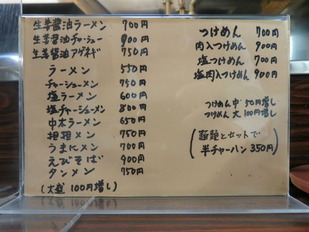 生姜醤油ラーメン 700円
生姜醤油チャーシュー 900円
生姜醤油アゲネギ 750円
ラーメン 550円
チャーシューメン 750円
塩ラーメン 600円
塩チャーシューメン 800円
中本ラーメン 650円
担担メン 750円
うまにメン 700円
えびそば 900円
タンメン 750円
(大盛 100円増し)
つけめん 700円
肉入つけめん 900円
塩つけめん 700円
塩肉入つけめん 900円
つけめん中 50円増し
つけめん大 100円増し
(麺類とセットで
半チャーハン 350円)